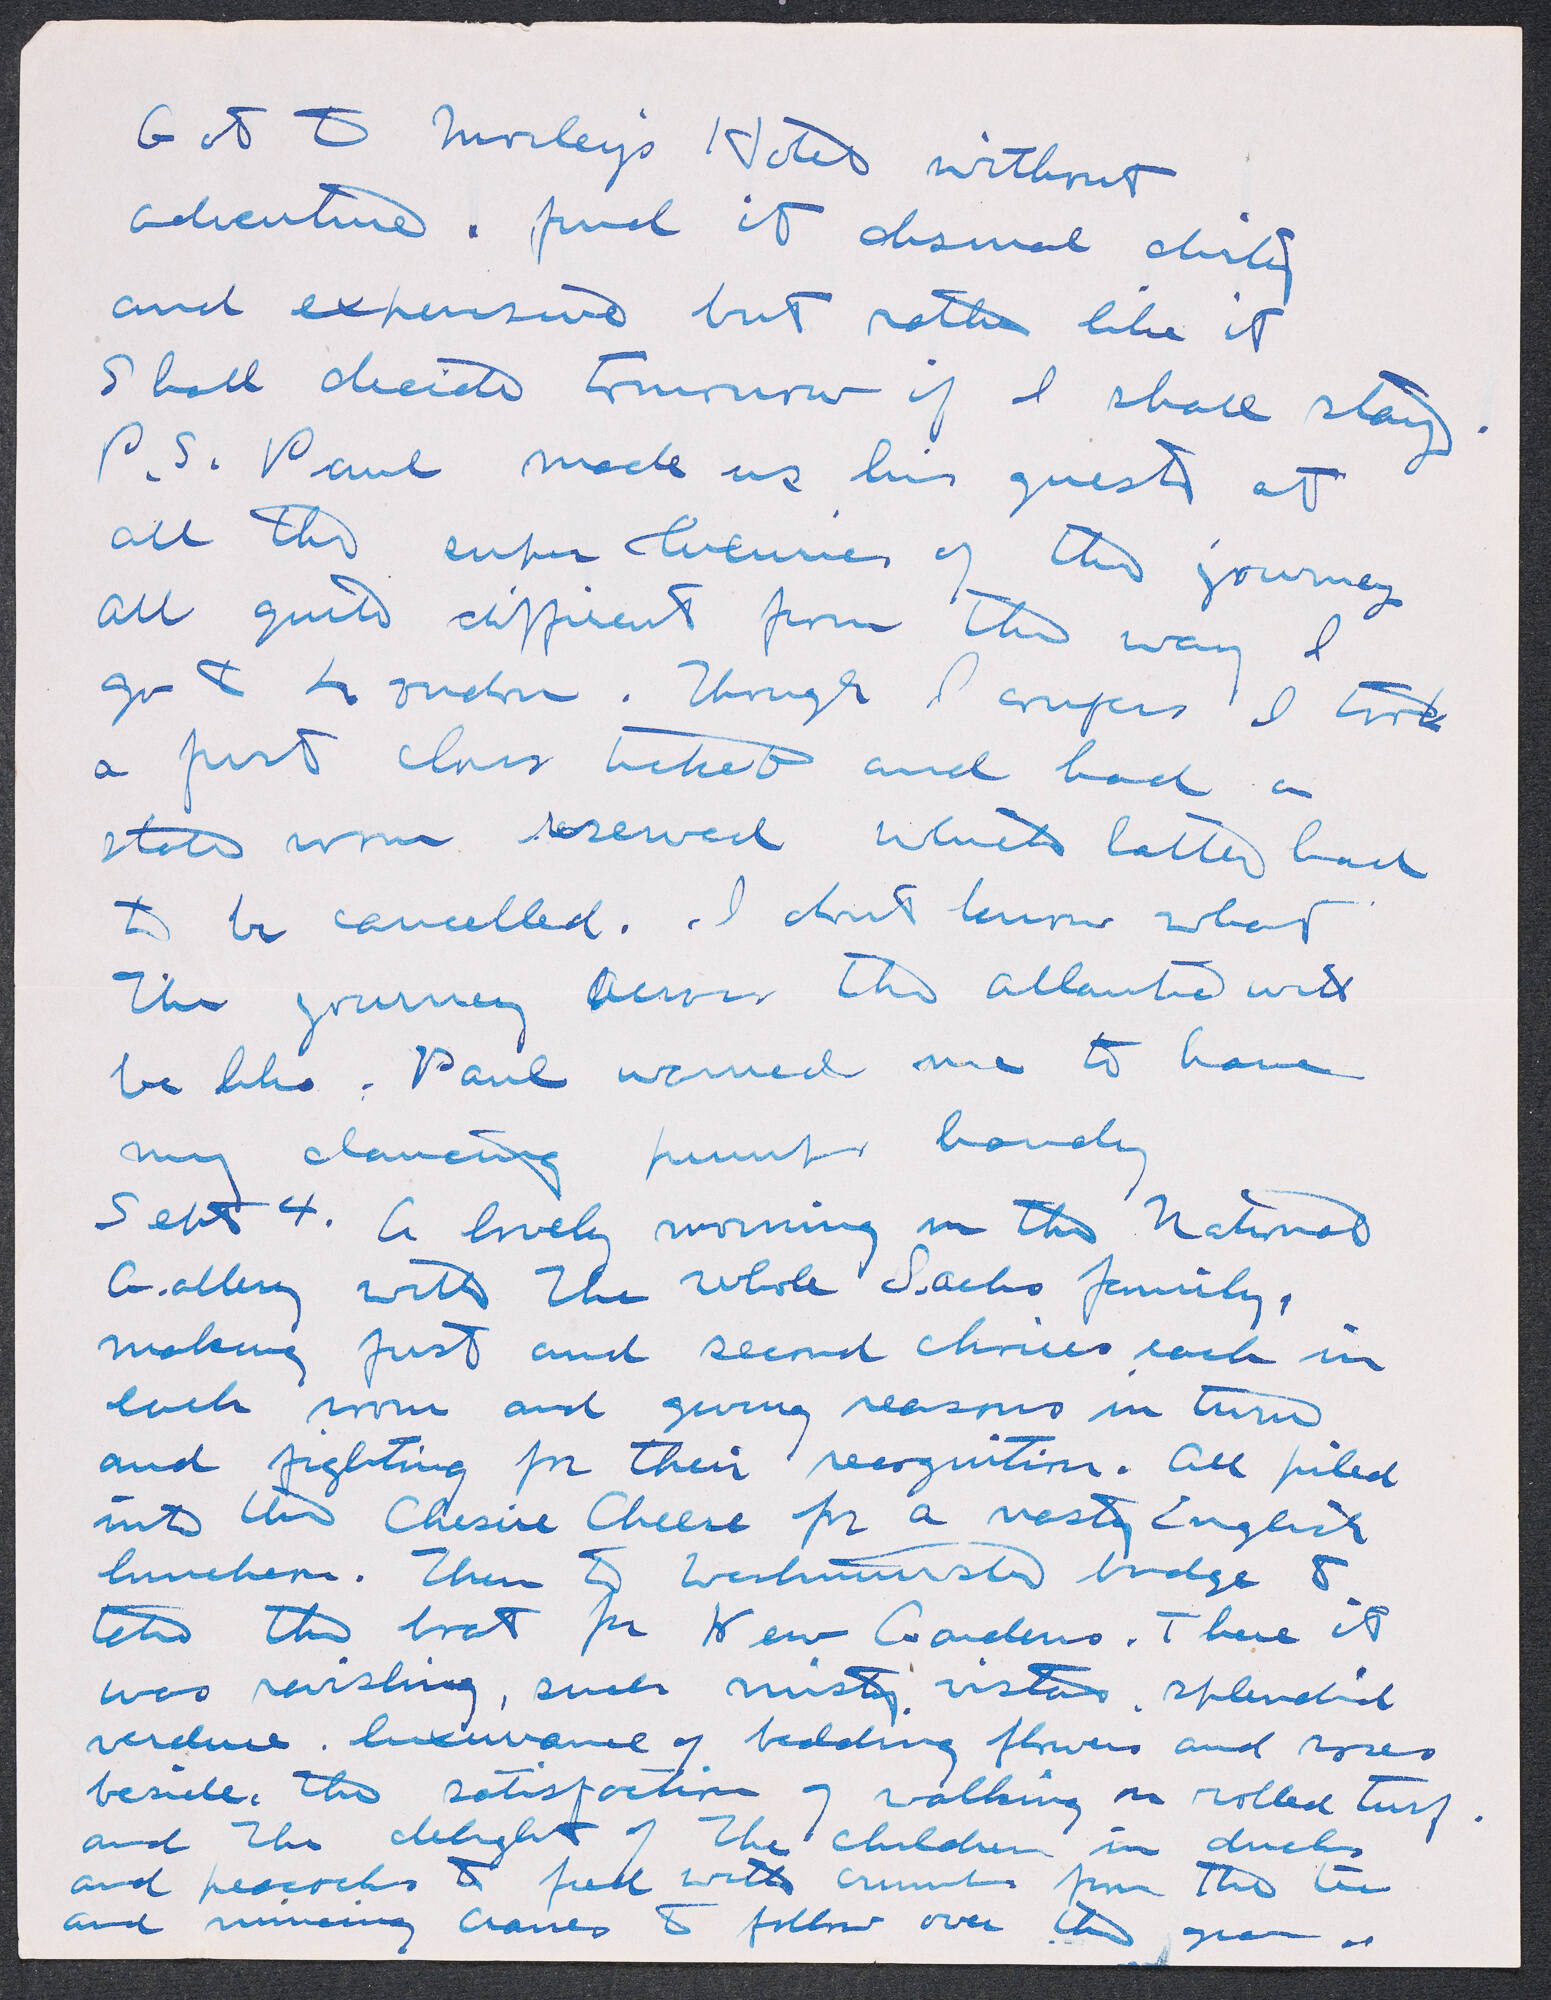 Got to Morley's Hotel without
adventure. find it dismal dirty
and expensive but rather like it
Shall decide tomorrow if I shall stay.
P.S. Paul made us his guests at
all the super luxuries of the journey
all quite different from the way I
go to London. Though I confess I took
a first class ticket and had a
state room reserved which latter had
to be cancelled. I dont know what
The journey across the Atlantic will
be like. Paul warned me to have
my dancing pumps handy
Sept 4. A lovely morning in the National
Gallery with the whole Sachs family,
making first and second choices each in
each room and giving reasons in turn
and fighting for their recognition. All piled
into the Chesire Cheese for a nasty English
luncheon. Then to Westminster bridge to
take the boat for Kew Gardens. There it
was ravishing, such misty vistas. splendid
verdure. luxuriance of bedding flowers and roses
beside. the satisfaction of walking on rolled turf.
and the delight of the children in ducks
and peacocks to feed with crumbs from the tea
and mincing cranes to follow over the green..